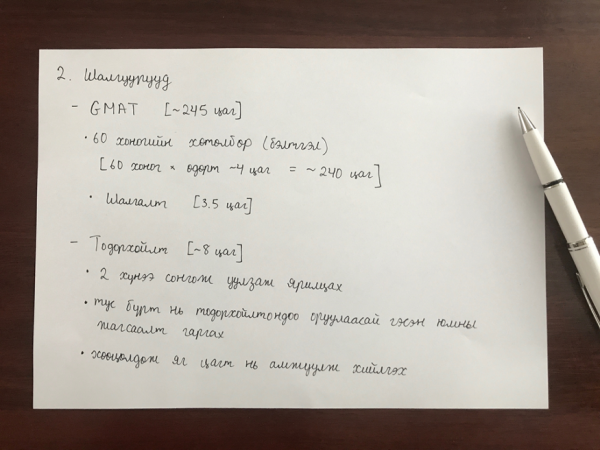 2. Шалгуурууд
- GMAT [~245 цаг]
• 60 хоногийн хөтөлбөр (бэлтгэл)
[60 хоног × өдөрт ~4 цаг = ~240 цаг]
• Шалгалт [3.5 цаг]
- Тодорхойлт [~8 цаг]
• 2 хүнээ сонгож уулзаж ярилцах
• тус бүрт нь тодорхойлтондоо оруулаасай гэсэн юмны
жагсаалт гаргах
• хөөцөлдөж яг цагт нь амжуулж хийлгэх